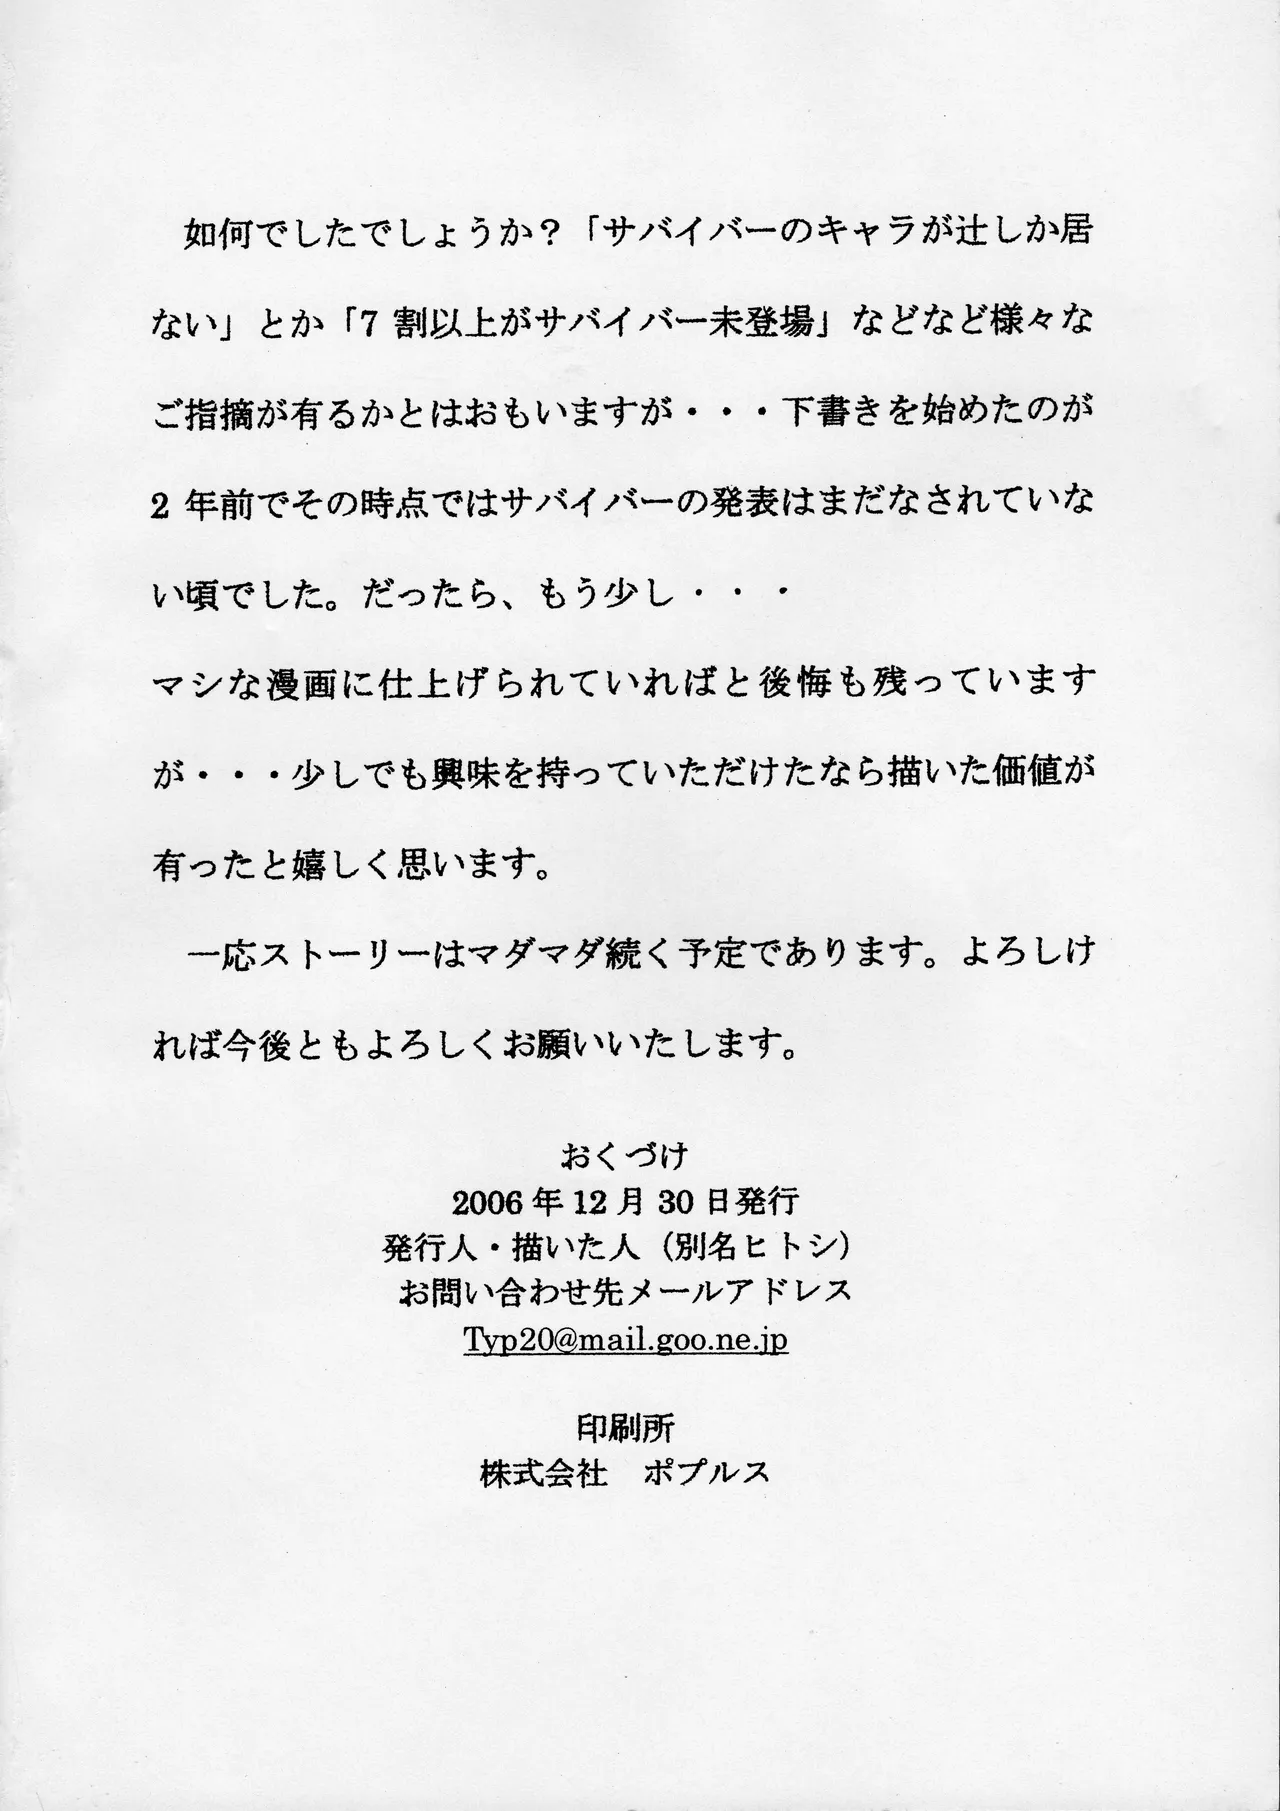 如何でしたでしょうか？「サバイバーのキャラが辻しか居
ない」とか「7 割以上がサバイバー未登場」などなど様々な
ご指摘が有るかとはおもいますが・・・下書きを始めたのが
2 年前でその時点ではサバイバーの発表はまだなされていな
い頃でした。だったら、もう少し・・・
マシな漫画に仕上げられていればと後悔も残っています
が・・・少しでも興味を持っていただけたなら描いた価値が
有ったと嬉しく思います。
一応ストーリーはマダマダ続く予定であります。よろしけ
れば今後ともよろしくお願いいたします。
おくづけ
2006 年 12 月 30 日発行
発行人・描いた人（別名ヒトシ）
お問い合わせ先メールアドレス
Typ20@mail.goo.ne.jp
印刷所
株式会社　ポプルス